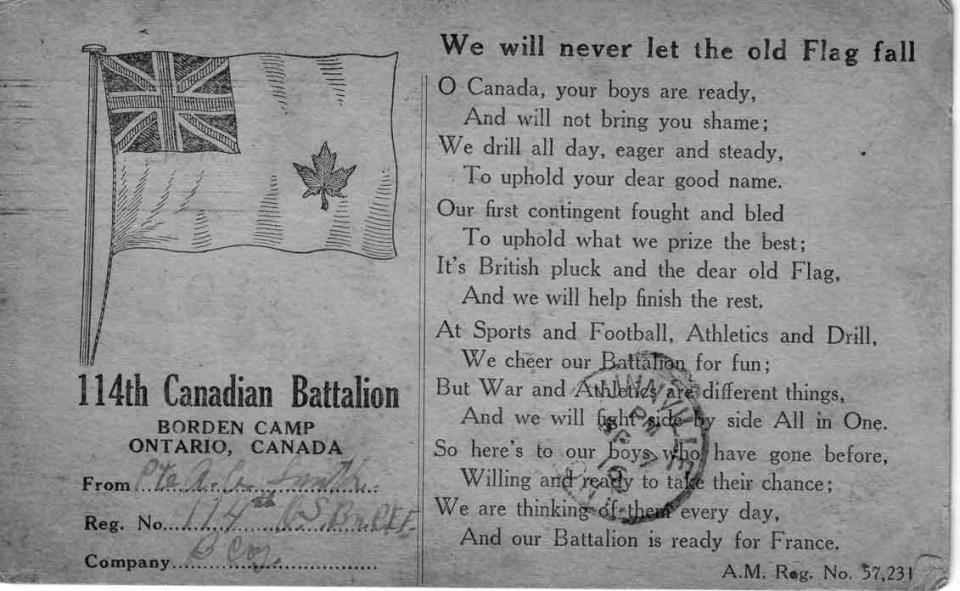 114th Canadian Battalion
BORDEN CAMP
ONTARIO, CANADA
From Pte A. C. Smith
Reg. No. 114th O.S. Bn CEF.
Company B Coy.
We will never let the old Flag fall
O Canada, your boys are ready,
And will not bring you shame;
We drill all day, eager and steady,
To uphold your dear good name.
Our first contingent fought and bled
To uphold what we prize the best;
It's British pluck and the dear old Flag,
And we will help finish the rest.
At Sports and Football, Athletics and Drill,
We cheer our Battalion for fun;
But War and Athletics are different things,
And we will fight side by side All in One.
So here's to our boys who have gone before,
Willing and ready to take their chance;
We are thinking of them every day,
And our Battalion is ready for France.
A.M. Reg. No. 57,231
PM